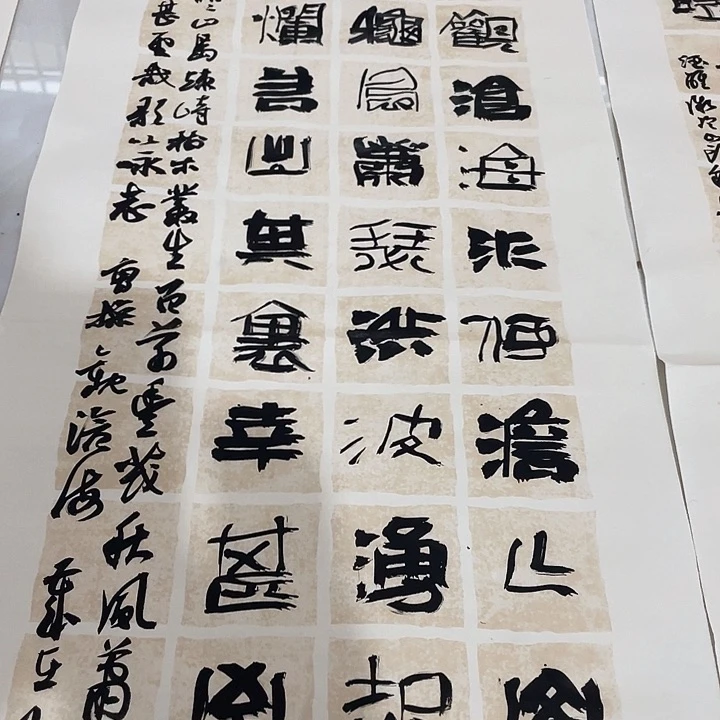 觀滄海水何澹
秋風蕭瑟洪波湧起
爛若出其裏幸甚
山島竦峙樹木叢生百草豐茂秋風蕭
甚至哉歌以咏志 曹操觀滄海 歲在